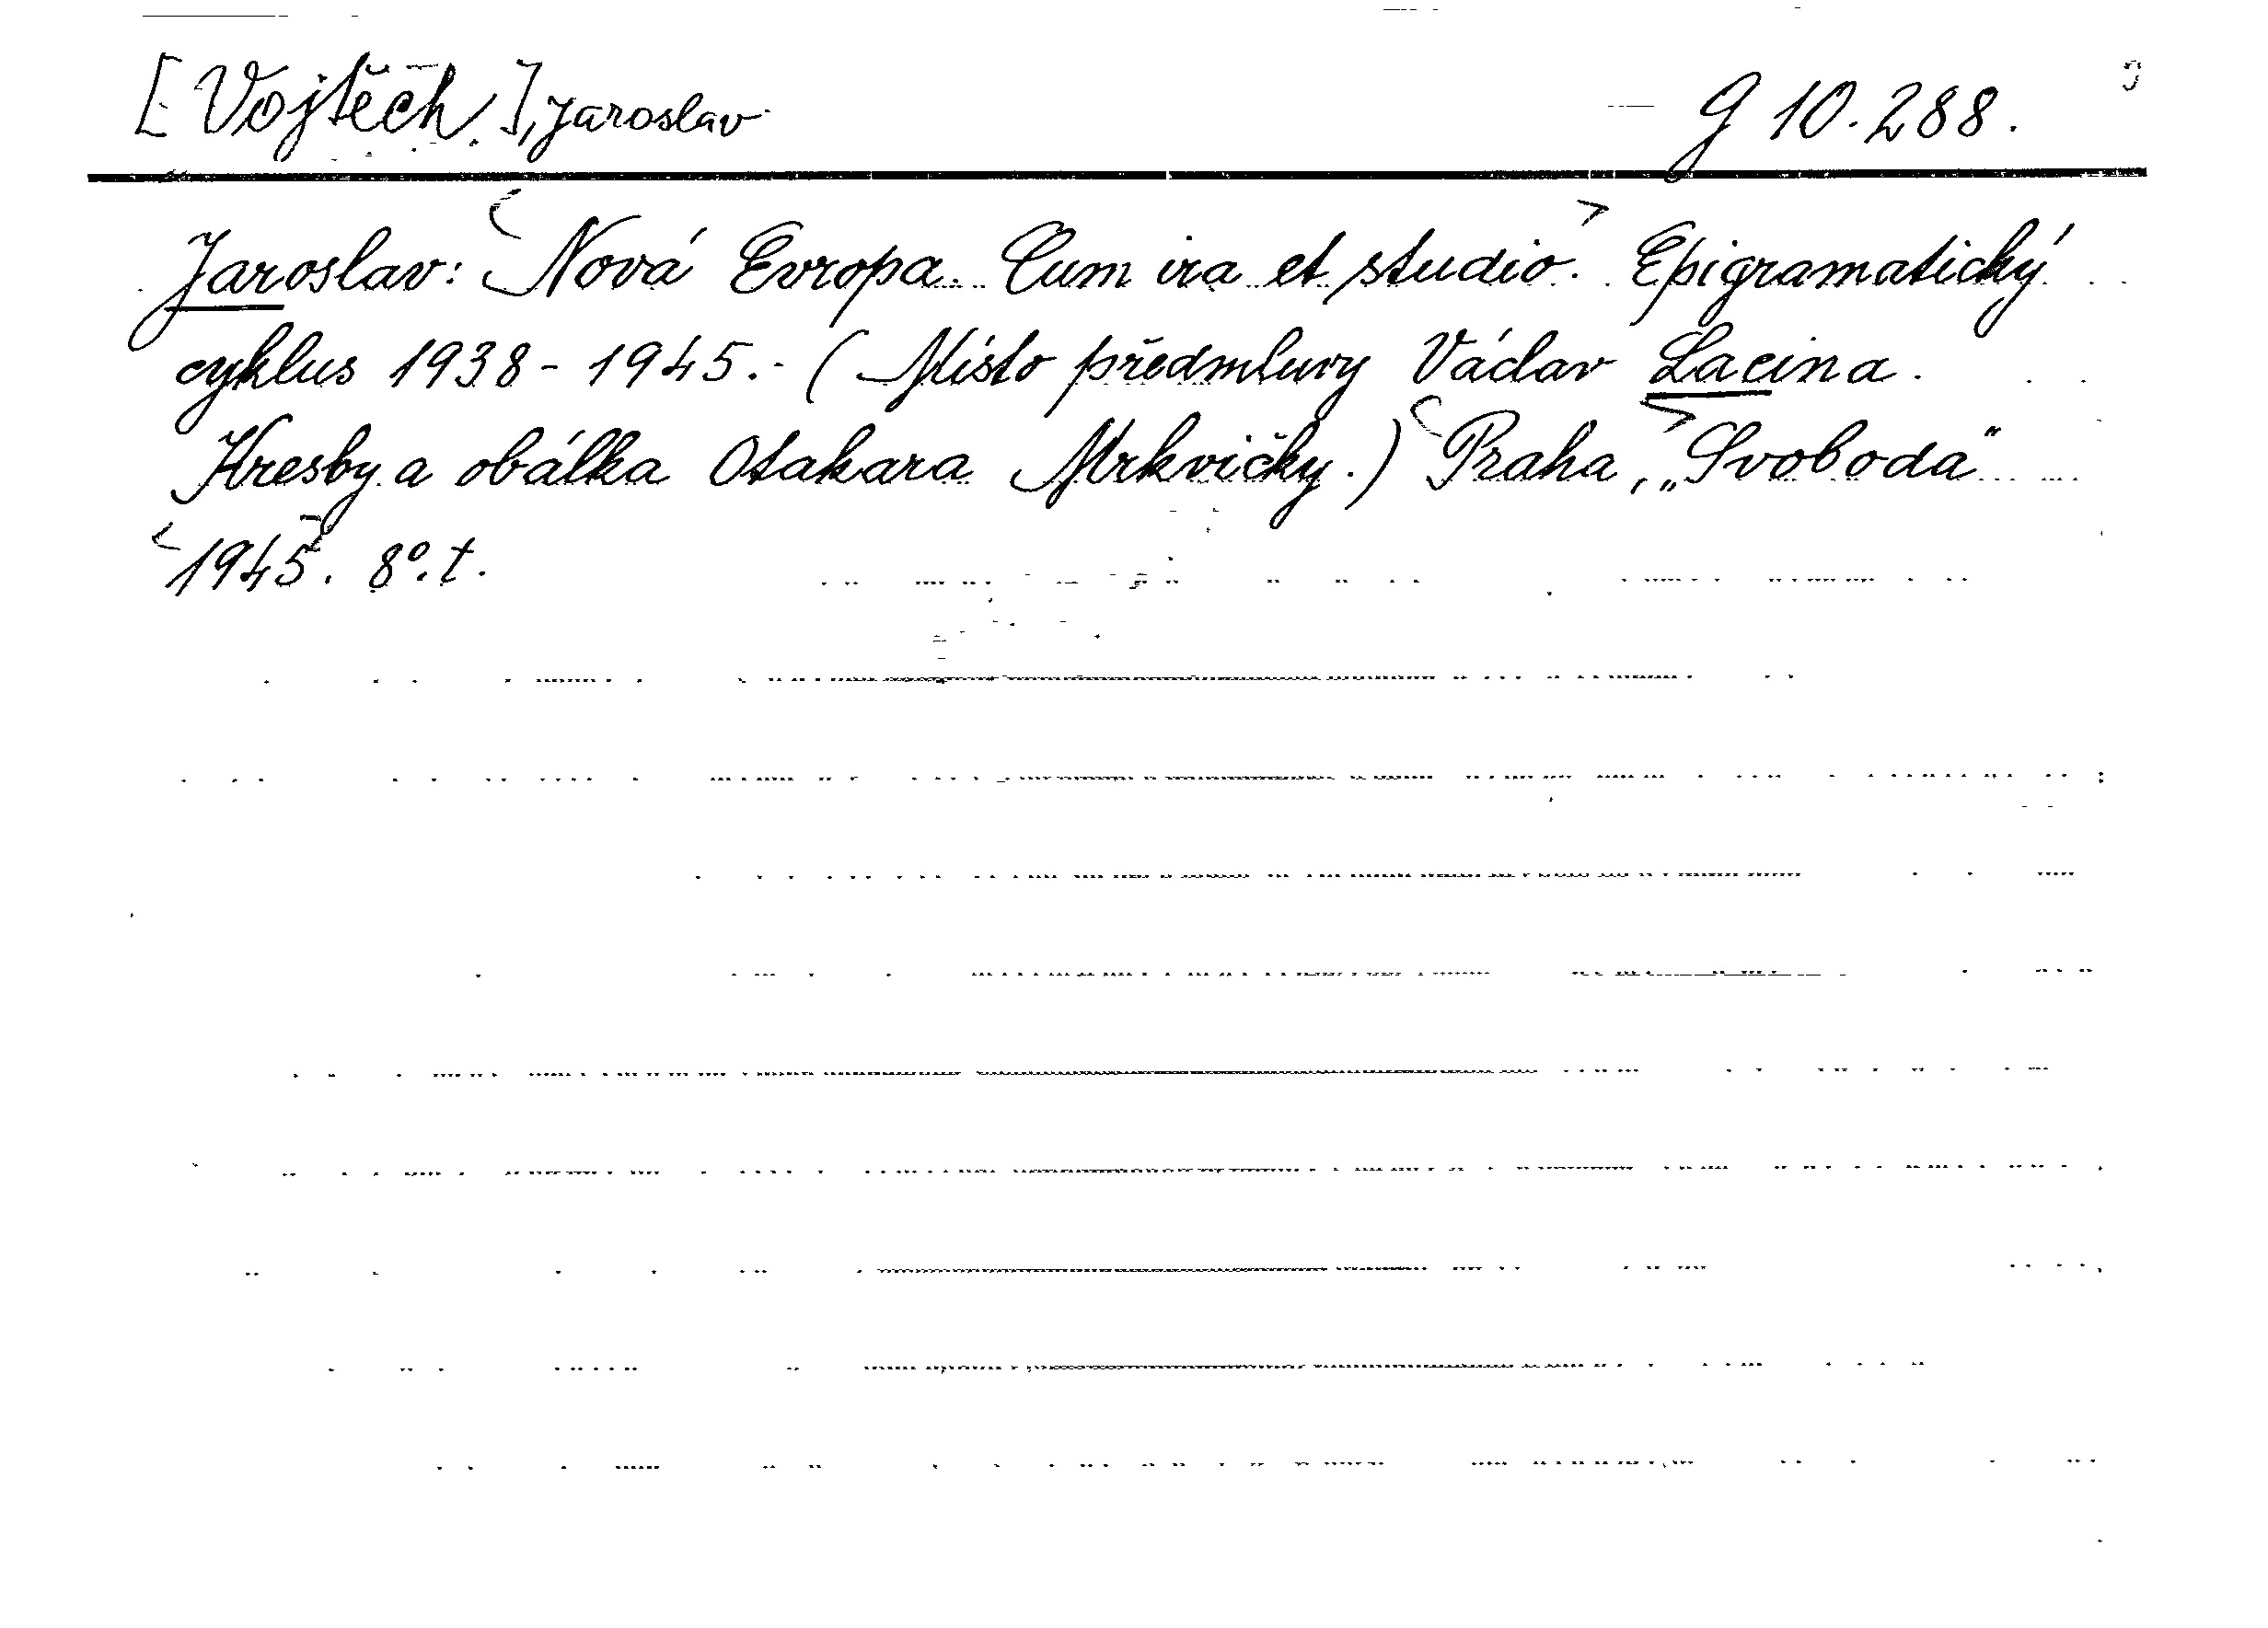 [Vojtěch], Jaroslav G 10.288.
Jaroslav: Nová Evropa. Cum ira et studio. Epigramatický
cyklus 1938-1945.- (Místo předmluvy Václav Lacina.
Kresby a obálka Otakara Mrkvičky.) Praha, „Svoboda"
1945. 8°. t.